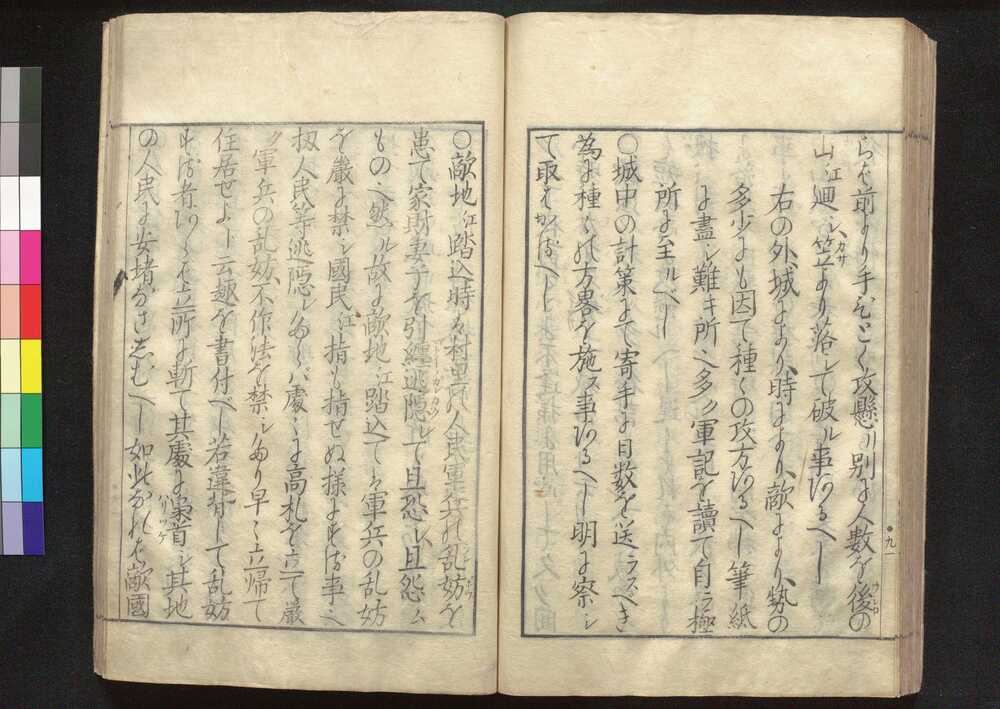 らバ前より手を㐂とく攻懸リ別に人数を後の
山江廻シ笠より落して破ル事あるへし
右の外城により時により敵により勢の
多少にも因て種々の攻方あるへし筆紙
に盡シ難キ所へ多ク軍記を讀て自ラ極
所に至ルべし
○城中の計策にて寄手に日数を送ラスへき
為に種々の方畧を施ス事あるへし明に察シ
て取はかるへし
○敵地江踏込時は村里の人民軍兵の乱妨を
患て家財妻子を引纏逃隠して且恐レ且怨ム
もの也然ル故に敵地江踏込ては軍兵の乱妨
を嚴に禁シ國民江指も指せぬ様にする事也
扨人民等逃隠レたらバ處々に高札を立て嚴
ク軍兵の乱妨不作法を禁シたり早々立帰て
住居せよト云趣を書付べし若違背して乱妨
する者あらは立所に斬て其處に梟首シ其地
の人民に安堵なさしむへし如此なれは敵國
九